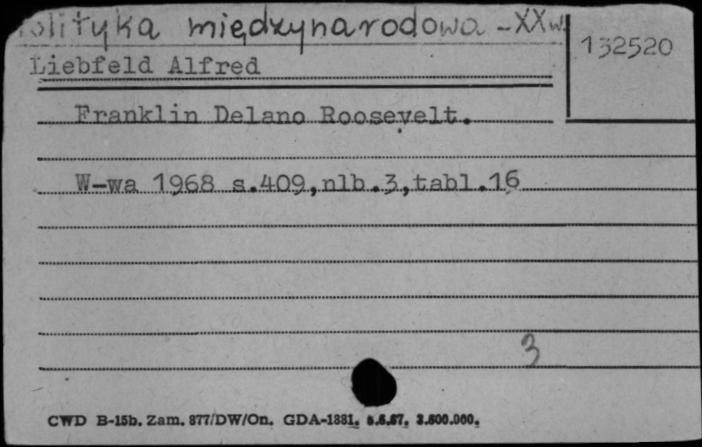 Polityka międzynarodowa - XX w.
132520
Liebfeld Alfred
Franklin Delano Roosevelt.
W-wa 1968 s.409,nlb.3,tabl.16
3
CWD B-15b. Zam. 877/DW/On. GDA-1881. 5.5.67. 3.600.000.